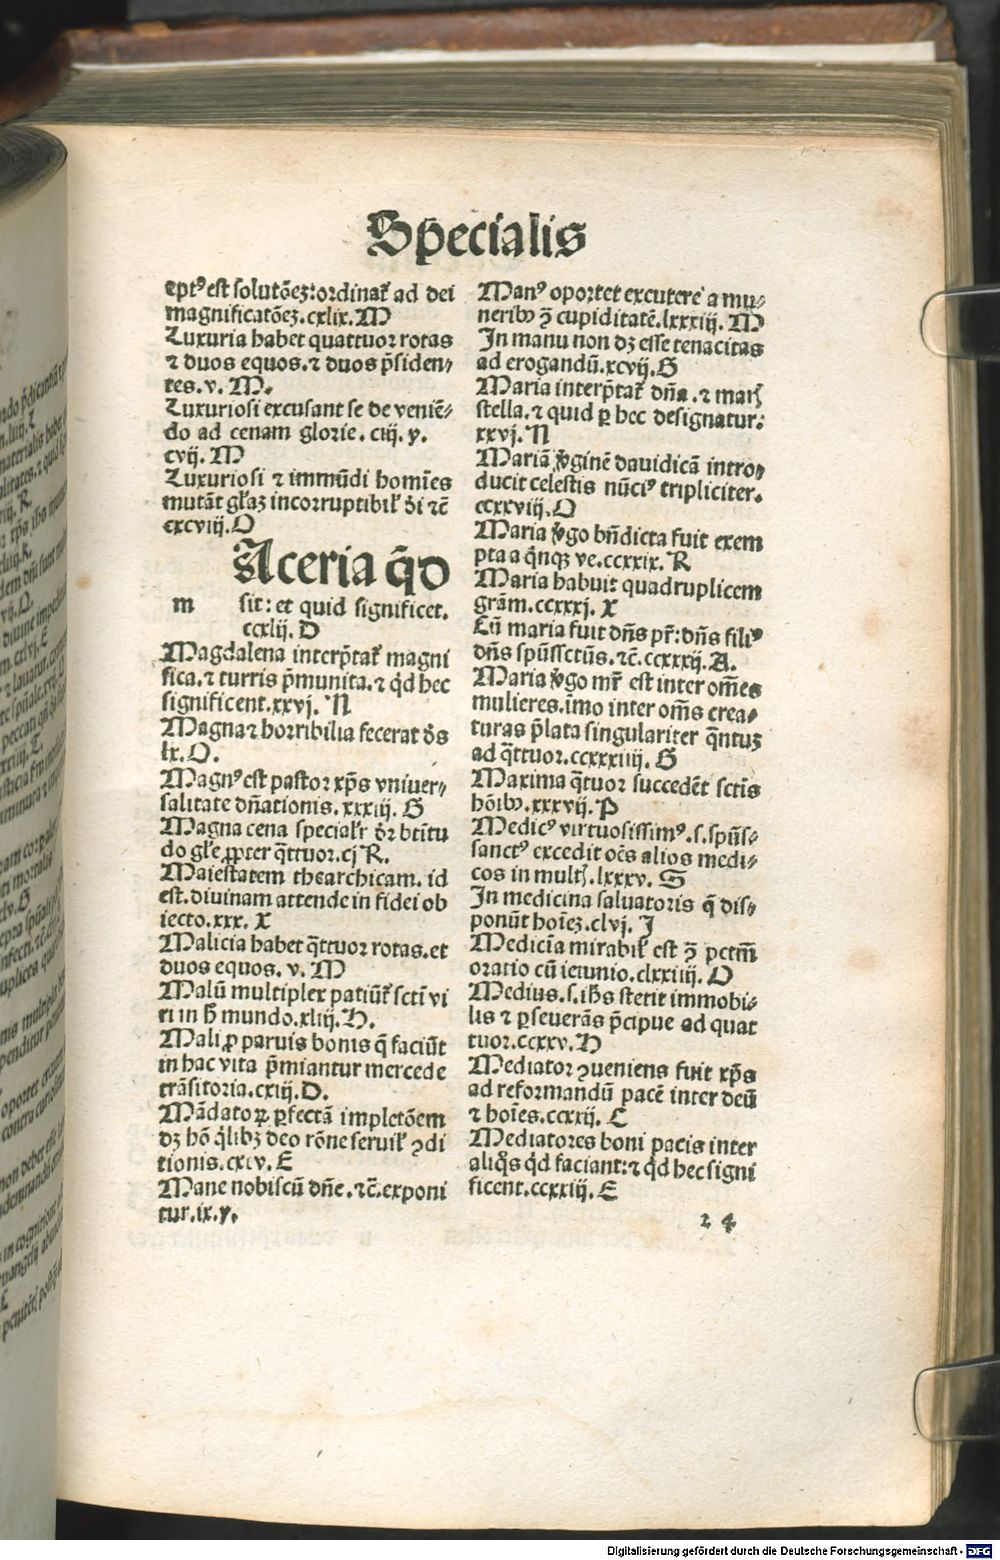 Specialis
eptꝰ est solutõeꝫ: ordinat᷑ ad dei
magnificatõeꝫ. cxlix. M
Luxuria habet quattuor rotas
⁊ duos equos. ⁊ duos p̃siden⸗
tes. v. M.
Luxuriosi excusant se de veniẽ⸗
do ad cenam glorie. ciij. y.
cvij. M
Luxuriosi ⁊ immũdi homĩes
mutãt gl̃aꝫ incorruptibil̃ d̃i ⁊c̃
cxcviij. O
Aceria q̃d
m sit: et quid significet.
ccxlij. D
Magdalena interp̃tat᷑ magni
fica. ⁊ turris p̃munita. ⁊ qd̓ hec
significent. xxvj. N
Magna ⁊ horribilia fecerat d̓s
lx. O.
Magnꝰ est pastor xp̃s vniuer⸗
salitate dñationis. xxxiij. G
Magna cena specialr̃ dr̃ btĩtu
do gl̃e ꝓpter q̃ttuor. cj R.
Maiestatem thearchicam. id
est. diuinam attende in fidei ob
iecto. xxx. X
Malicia habet q̃ttuor rotas. et
duos equos. v. M
Malũ multiplex patiũt᷑ sctĩ vi
ri in h̃ mundo. xliij. H.
Mali ꝓ paruis bonis q̃ faciũt
in hac vita p̃miantur mercede
trãsitoria. cxiij. D.
Mãdatoꝝ ꝑfectã impletõem
dꝫ hõ q̓libꝫ deo rõne seruil̃ ꝯdi
tionis. cxcv. E
Mane nobiscũ dñe. ⁊c̃. exponi
tur. ix. y.
Manꝰ oportet excutere a mu⸗
neribꝰ ꝫ̃ cupiditatẽ. lxxxiij. M
In manu non dꝫ esse tenacitas
ad erogandũ. xcvij. G
Maria interp̃tat᷑ dña. ⁊ marꝭ
stella. ⁊ quid ꝑ hec designatur.
xxvj. N
Mariã ꝟginẽ dauidicã intro⸗
ducit celestis nũciꝰ tripliciter.
ccxxviij. O
Maria ꝟgo bñdicta fuit exem
pta a q̓nqꝫ ve. ccxxix. R
Maria habuit quadruplicem
grãm. ccxxxj. X
Cũ maria fuit dñs pr̃: dñs filiꝰ
dñs spũssctũs. ⁊c̃. ccxxxij. A.
Maria ꝟgo mr̃ est inter om̃es
mulieres. imo inter om̃s crea⸗
turas p̃lata singulariter q̃ntuꝫ
ad q̃ttuor. ccxxxiiij. G
Maxima q̃tuor succedẽt sctĩs
hõibꝰ. xxxvij. P
Medicꝰ virtuosissimꝰ. s. spũs⸗
sanctꝰ excedit oẽs alios medi⸗
cos in multꝭ. lxxxv. S
In medicina saluatoris q̃ dis⸗
ponũt hoĩeꝫ. clvj. I
Medicĩa mirabil̃ est ꝫ̃ pctm̃
oratio cũ ieiunio. clxxiiij. O
Medius. s. ih̃s stetit immobi⸗
lis ⁊ ꝑseuerãs p̃cipue ad quat
tuor. ccxxv. H
Mediator ꝯueniens fuit xp̃s
ad reformandũ pacẽ inter deũ
⁊ hoĩes. ccxxij. C
Mediatores boni pacis inter
aliq̓s qd̓ faciant: ⁊ qd̓ hec signi
ficent. ccxxiij. E
24
Digitalisierung gefördert durch die Deutsche Forschungsgemeinschaft - DFG